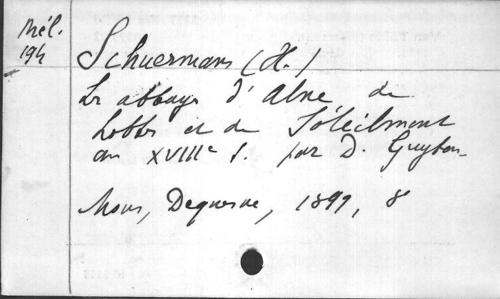 Mél.
194
Schuermans (H.)
Les abbayes d'Alne de
Lobbes et de Soleilmont
au XVIIIe s. par D. Guyton
Mons, Dequesne, 1899, 8